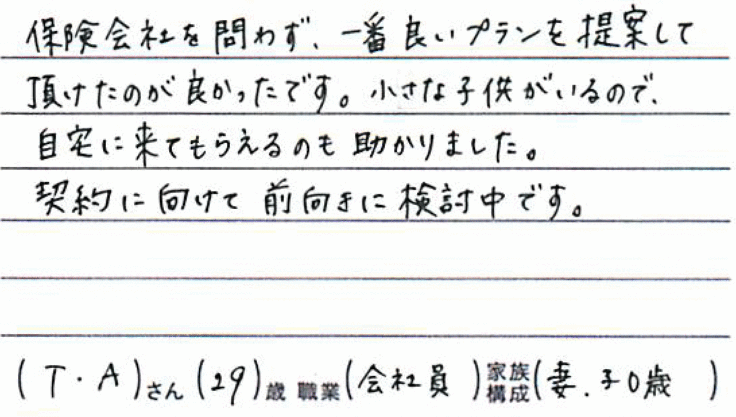 保険会社を問わず、一番良いプランを提案して
頂けたのが良かったです。小さな子供がいるので、
自宅に来てもらえるのも助かりました。
契約に向けて前向きに検討中です。
(T・A)さん(29)歳 職業(会社員)家族構成(妻．子0歳)